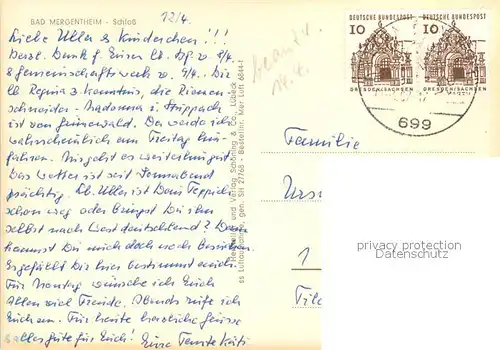 BAD MERGENTHEIM - Schloß
12/4.
Liebe Ulla & Kinderchen!!!
Herzl. Dank f. Euren lb. Bf. v. 9/4.
& Gemeinschaftswerk v. 7/4. Die
lb. Regina z. Kenntnis, die Riemen-
schneider-Madonna i.
ist von Grünewald. Da werde ich
wahrscheinlich am Freitag hin-
fahren. Mir geht es weiterhin gut.
Das Wetter ist seit Sonnabend
prächtig. Lb. Ulla ist Dein Teppich
schon weg oder bringst Du ihn
selbst nach Westdeutschland? Dann
kannst Du mich doch noch besuchen.
Es gefällt Dir hier bestimmt auch.
Für Montag wünsche ich Euch
allen viel Freude. Abends rufe ich
Euch an. Für heute herzliche Grüsse
& alles gute für Euch! Eure Tante Käti
beantw.
14.4.
Herstellung und Verlag Schöning & Co., Lübeck
gen. SH 27768 - Bestellnr. Mer Luft 6844-1
DEUTSCHE BUNDESPOST DEUTSCHE BUNDESPOST
10 10
DRESDEN/SACHSEN DRESDEN/SACHSEN
699
Familie
1
copyright
protected
Datenschutz